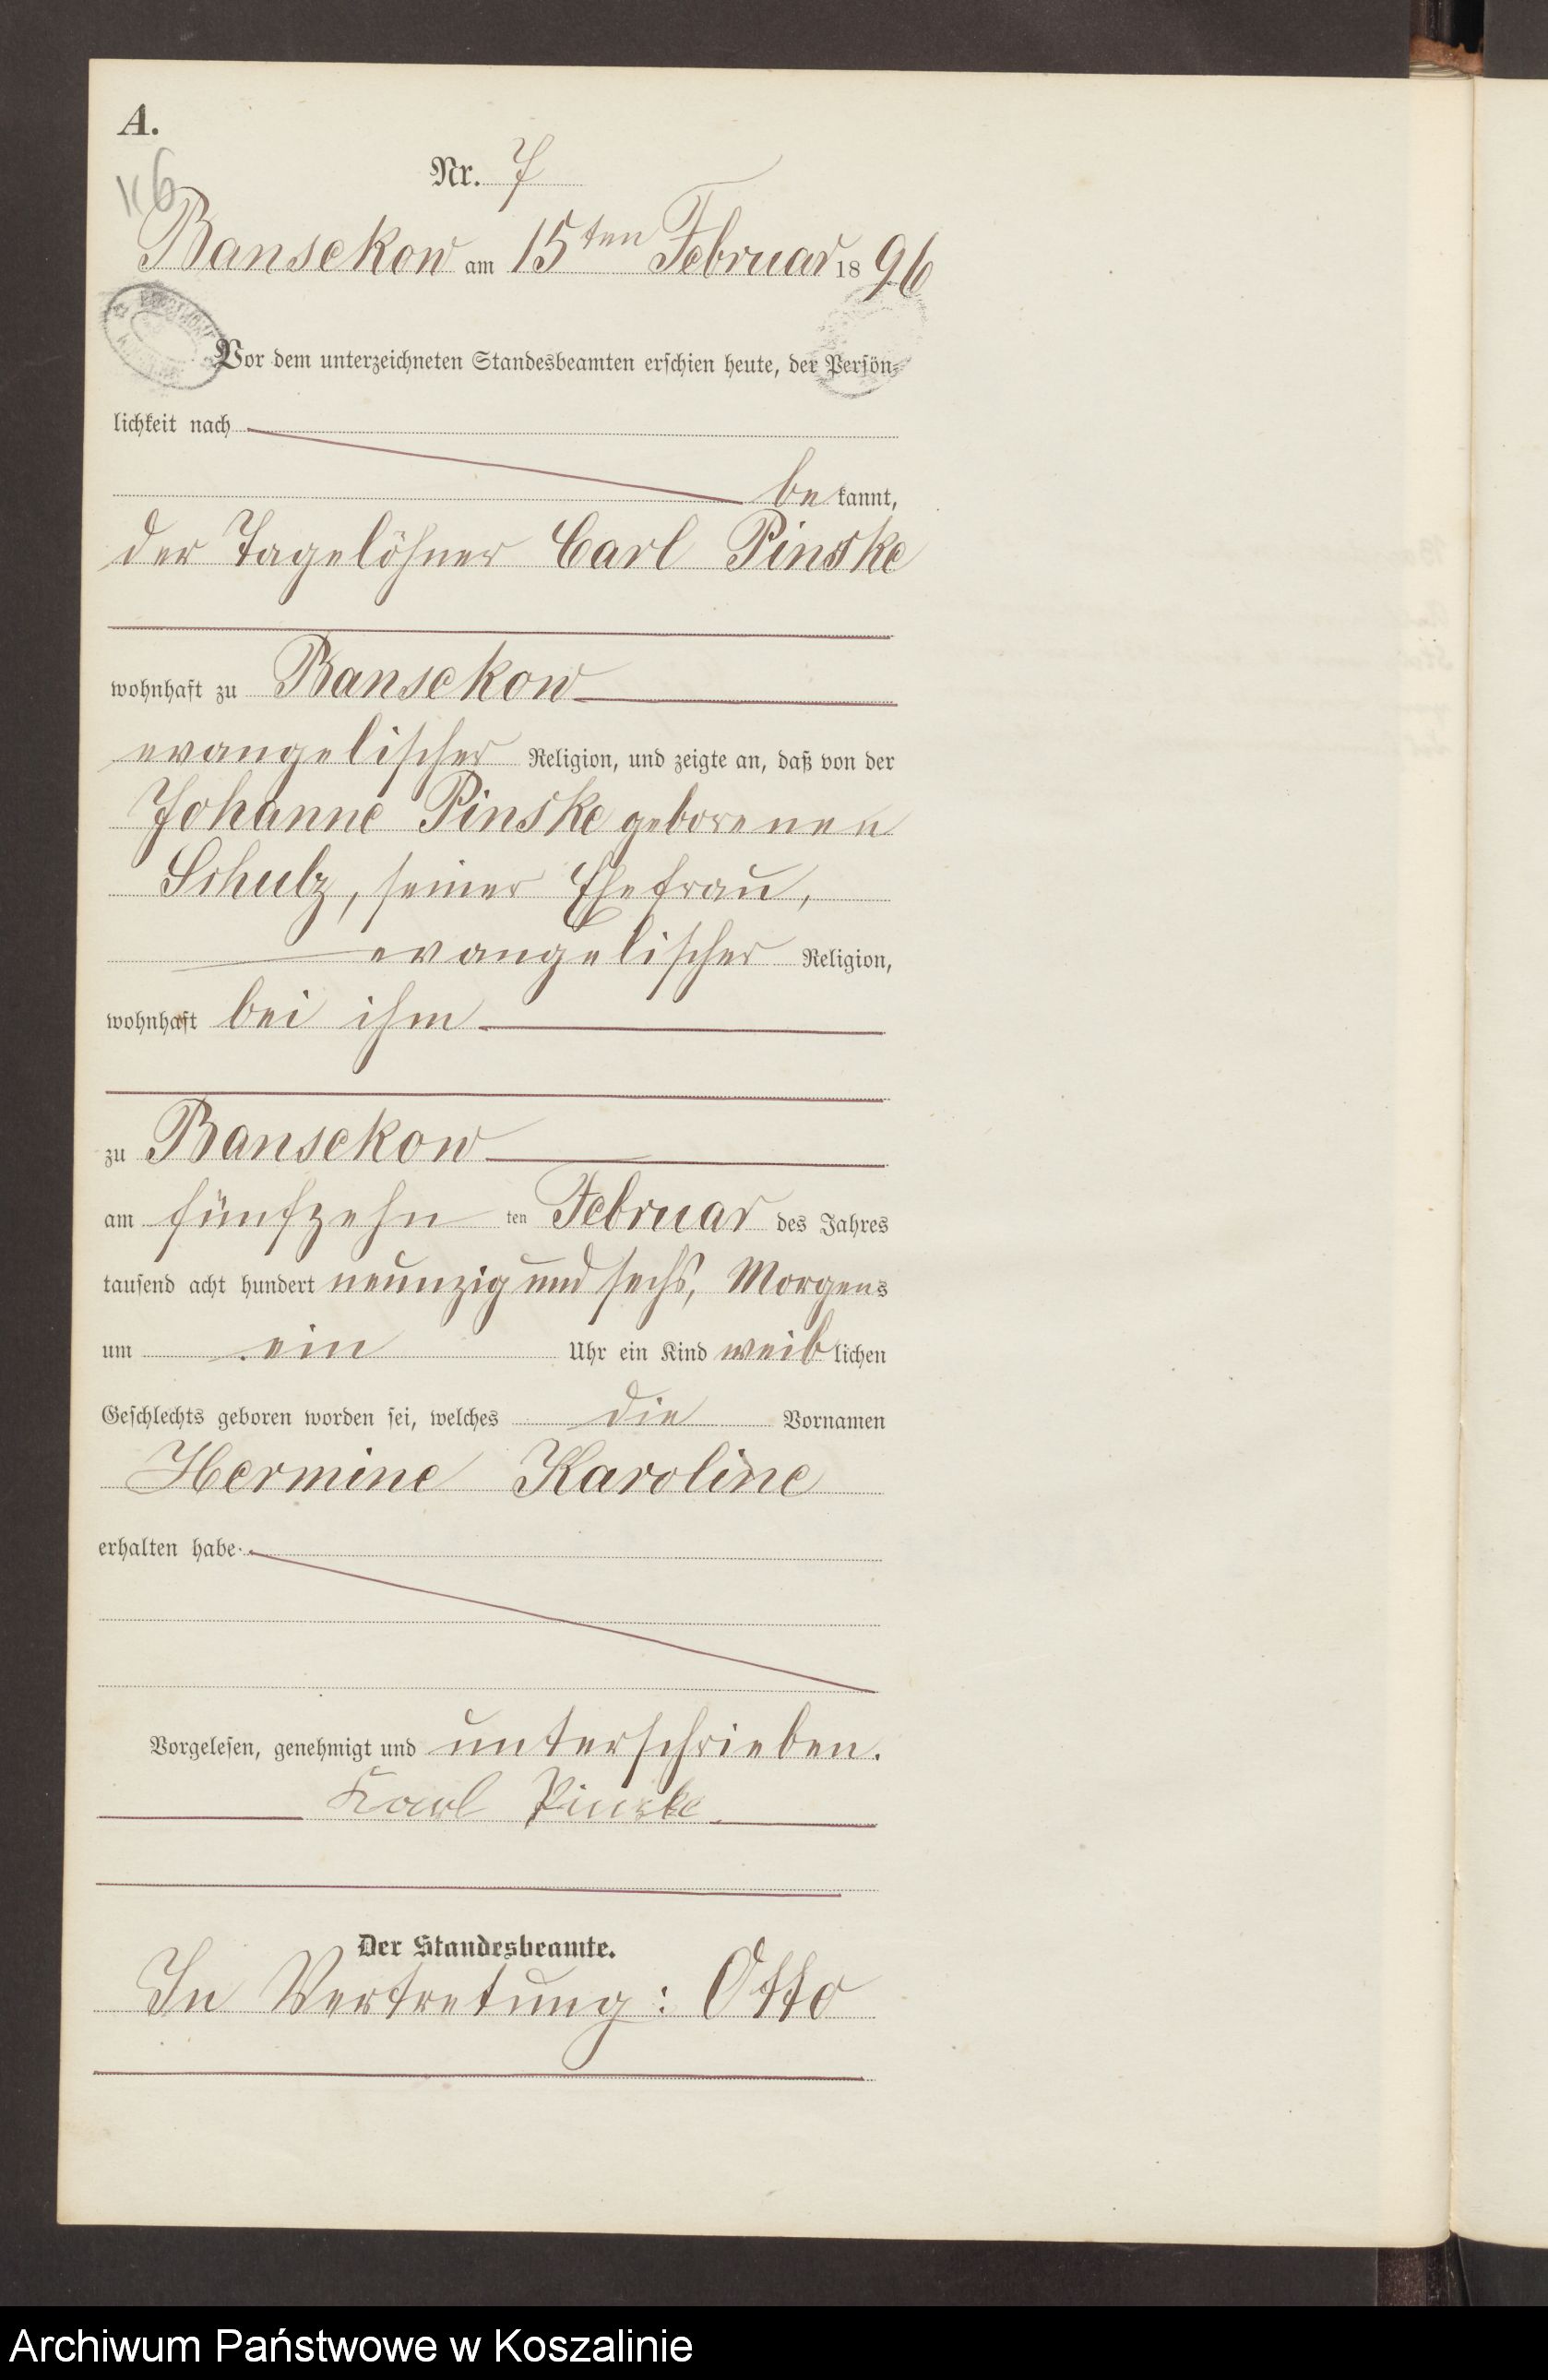 A.
Nr. 7
K6
Bansekow am 15ten Februar 1896
Vor dem unterzeichneten Standesbeamten erschien heute, der Persön-
lichkeit nach
be kannt,
der Tagelöhner Carl Pinske
wohnhaft zu Bansekow
evangelischer Religion, und zeigte an, daß von der
Johanne Pinske geborenen
Schulz, seiner Ehefrau,
evangelischer Religion,
wohnhaft bei ihm
zu Bansekow
am fünfzehn ten Februar des Jahres
tausend acht hundert neunzig und sechs, Morgens
um ein Uhr ein Kind weib lichen
Geschlechts geboren worden sei, welches die Vornamen
Hermine Karoline
erhalten habe.
Vorgelesen, genehmigt und unterschrieben.
Karl Pinske
Der Standesbeamte.
In Vertretung: Otto
Archiwum Państwowe w Koszalinie